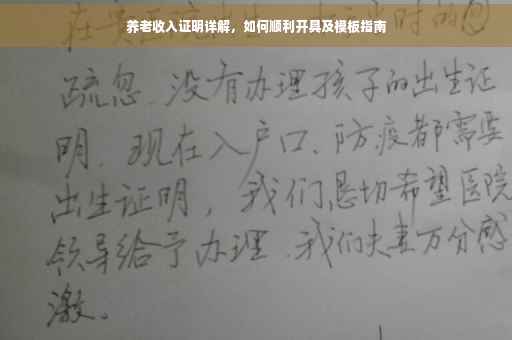 养老收入证明详解，如何顺利开具及模板指南
疏忽、没有办理孩子的出生证
明、现在入户口、防疫都需要
出生证明，我们恳切希望医院
领导给予办理、我们夫妻万分感
激。